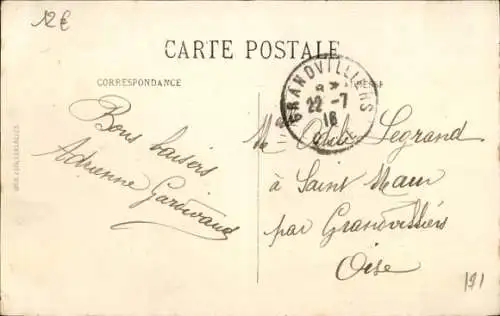 12€
CARTE POSTALE
CORRESPONDANCE
GRANDVILLIERS
22-7
16
Bons baisers
Adrienne
Legrand
à Saint Maur
par Grandvilliers
Oise
191